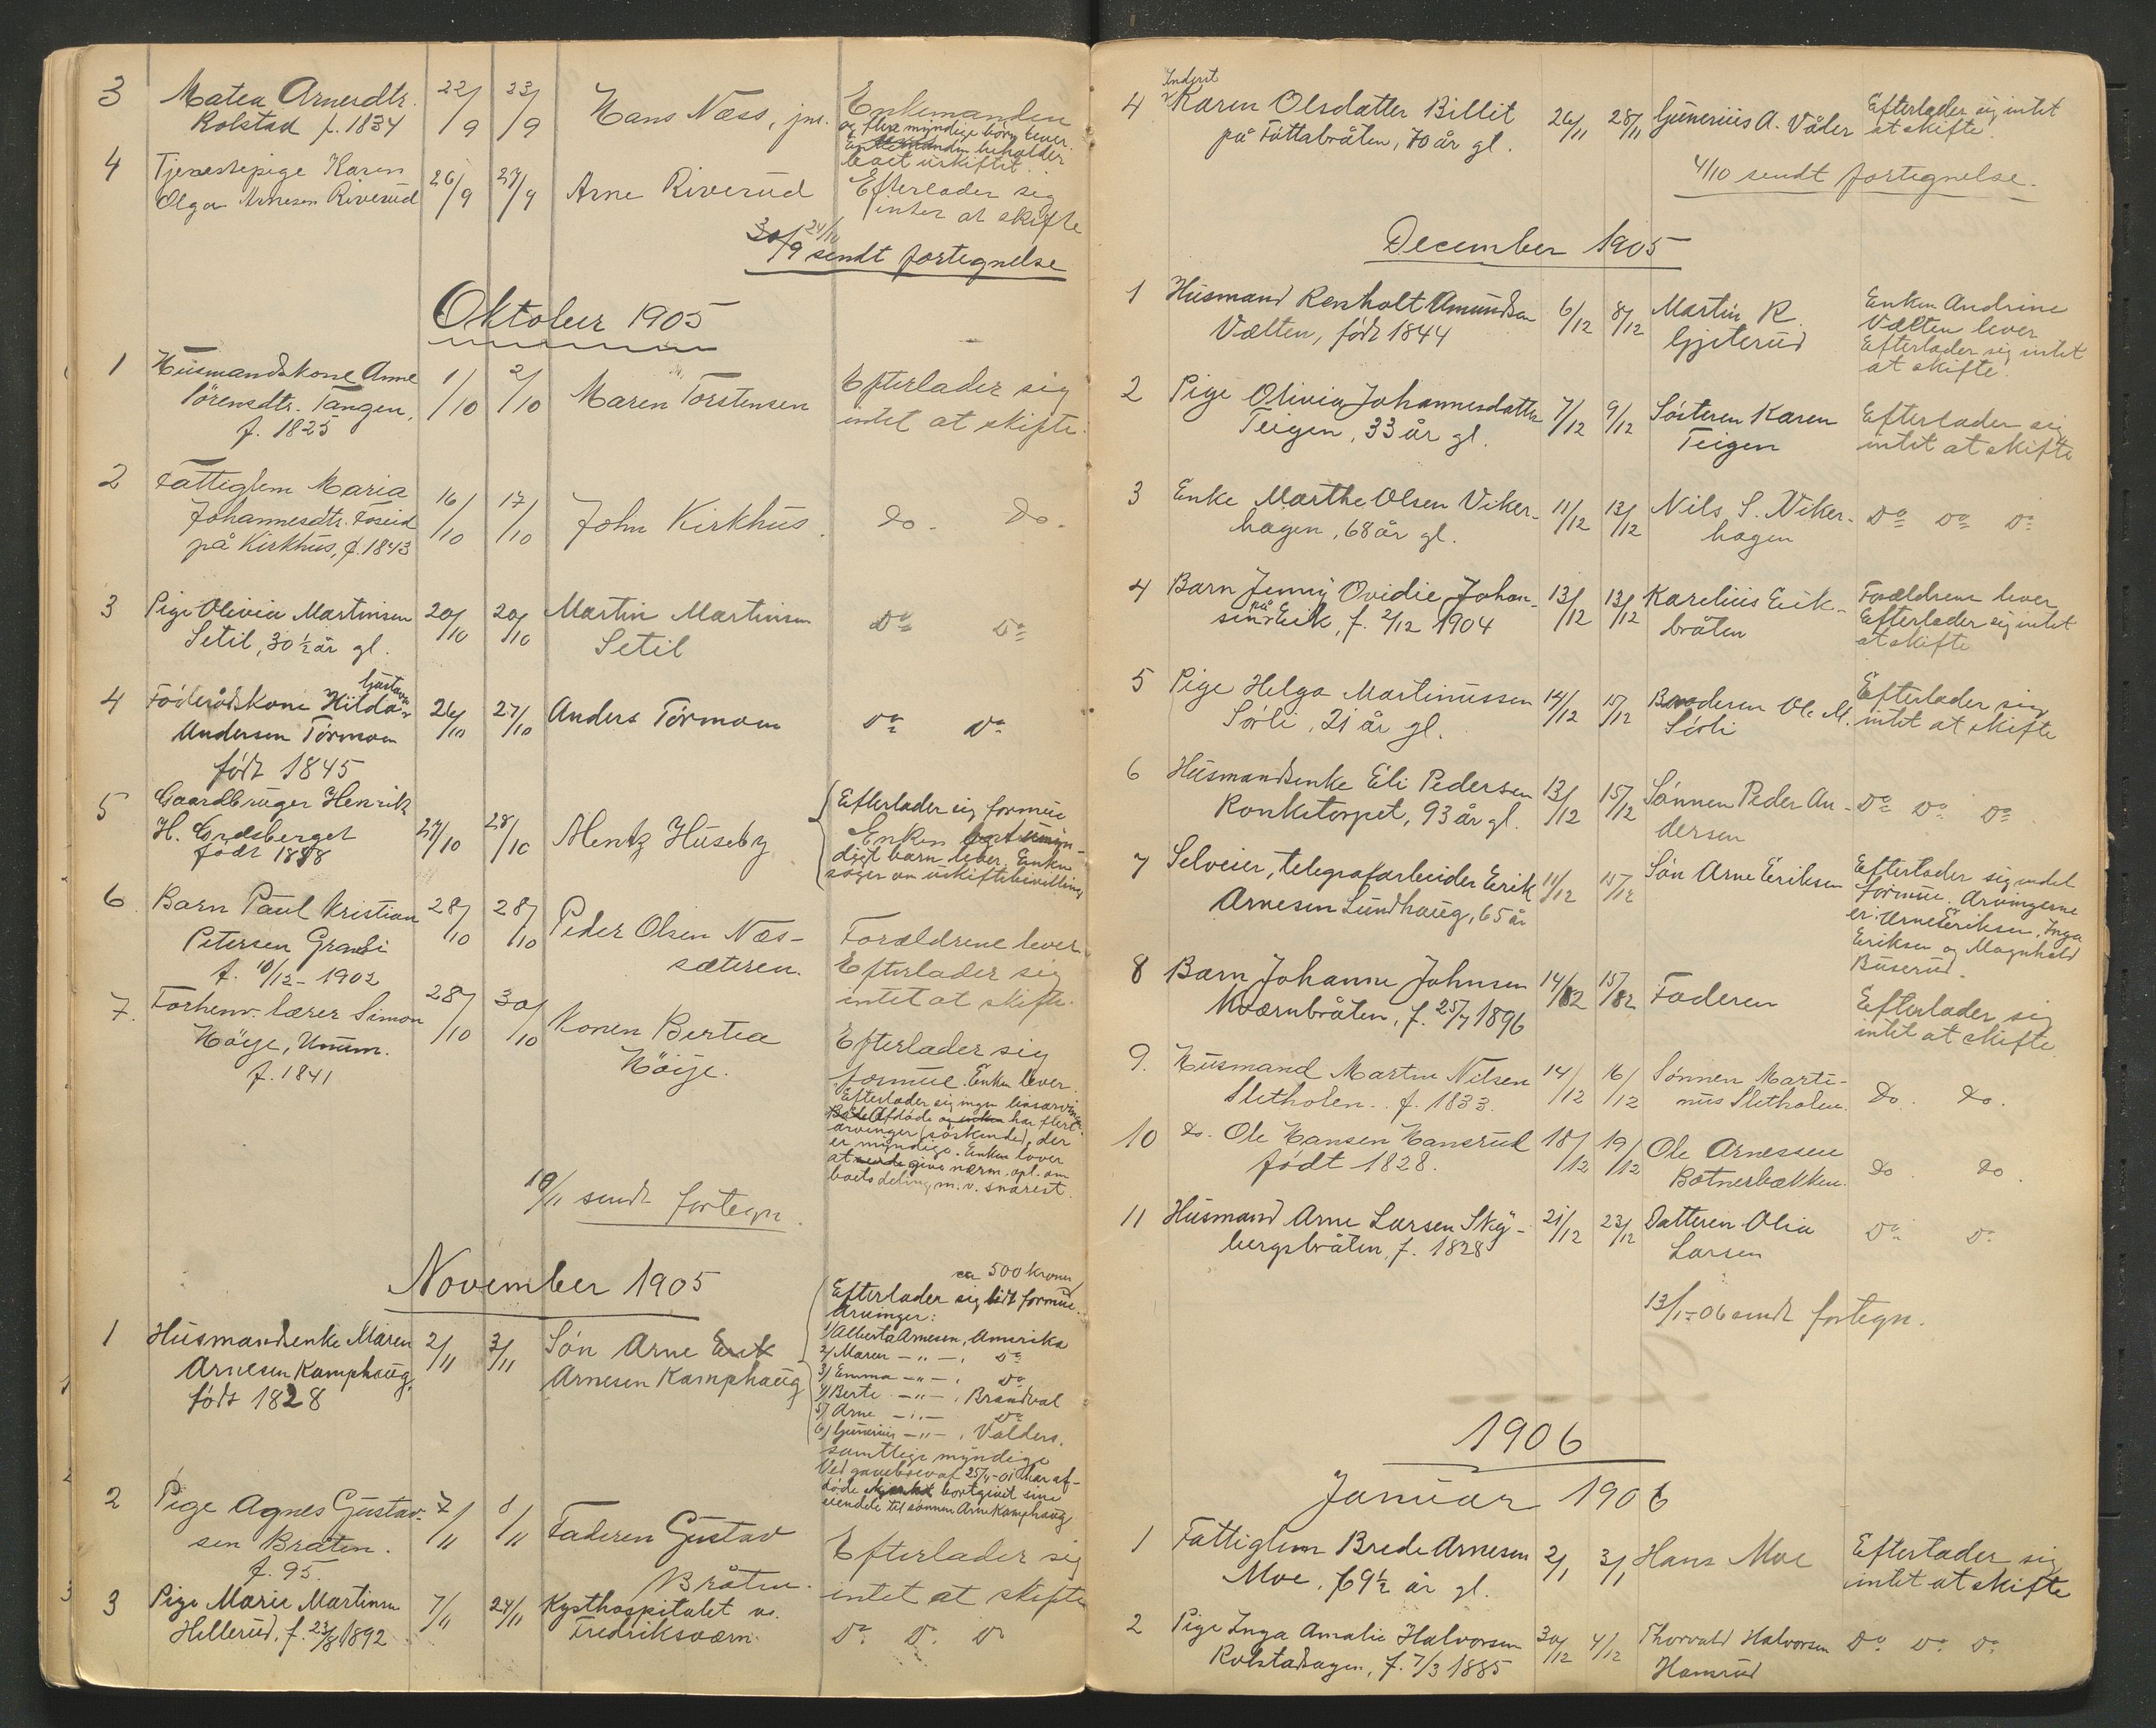 3 Matea Arnesdtr. 22/9 23/9 Hans Næss, jnr. Enkemanden
Rolstad f. 1834 og flere myndige børn lever.
Enkemanden beholder
boet uskiftet.
4 Tjenestepige Karen 26/9 27/9 Arne Riverud Efterlader sig
Olga Arnesen Riverud intet at skifte
30/9 24/10 sendt fortegnelse
Oktober 1905
1 Husmandskone Anne 1/10 2/10 Maren Torstensen Efterlader sig
Sörensdtr. Tangen, intet at skifte.
f. 1825
2 Fattiglem Maria 16/10 17/10 John Kirkhus. Do. Do.
Johannesdtr. Foseid
på Kirkhus, f. 1843
3 Pige Olivia Martinsen 20/10 20/10 Martin Martinsen Do Do
Setil, 30 ½ år gl. Setil
4 Föderådskone Hilda Gustava 26/10 27/10 Anders Törmoen Do Do
Andersen Törmoen
født 1845
5 Gaardbruger Henrik 27/10 28/10 Mentz Huseby Efterlader sig formue
H. Gredsberget Enken
født 1878 digt barn lever. Enken
søger om uskiftebevilling
6 Barn Paul Kristian 28/10 28/10 Peder Olsen Næs- Forældrene lever.
Petersen Granli sæteren. Efterlader sig
f. 10/12 - 1902 intet at skifte.
7. Forhenv. lærer Simon 28/10 30/10 Konen Bertea Efterlader sig
Höije, Unum. Höije. formue. Enken lever.
f. 1841 Efterlader sig ingen livsarvinger.
Både Afdøde og enken har flere
arvinger (söskende), der
er myndige. Enken lover
at give nærm. opl. om
boets deling m.v. snarest.
10/11 sendt fortegn.
November 1905
ca 500 kroner
1 Husmandsenke Maren 2/11 3/11 Sön Arne Erik Efterlader sig lidt formue.
Arnesen Kamphaug, Arnesen Kamphaug Arvinger:
født 1828 1/ Alberta Arnesen, Amerika
2/ Maren — " — , Do
3/ Emma — " — , Do
4/ Berte — " — , Brandval
5/ Arne — " — Do
6/ Gunerius — " — , Valders.
samtlige myndige
Ved gavebrev af 25/4-01 har af-
døde skjenket bortgivet sine
eiendele til sønnen Arne Kamphaug
2 Pige Agnes Gustav- 7/11 8/11 Faderen Gustav Efterlader sig
sen Bråten. Bråten. intet at skifte
f. 95.
3 Pige Marie Martinsen 7/11 24/11 Kysthospitalet v. Do. Do. Do
Hellerud, f. 23/8 1892 Fredriksværn.
4 Inderst Karen Olsdatter Billit 26/11 28/11 Gunerius A. Våler Efterlader sig intet
på Føttabråten, 70 år gl. at skifte.
4/10 sendt fortegnelse.
December 1905
1 Husmand Renholt Amundsen 6/12 8/12 Martin R. Enken Andrine
Vælten, født 1844 Gjiterud Vælten lever
Efterlader sig intet
at skifte.
2 Pige Olivia Johannesdatter 7/12 9/12 Søsteren Karen Efterlader sig
Teigen, 33 år gl. Teigen intet at skifte
3 Enke Marthe Olsen Viker- 11/12 13/12 Nils S. Viker- Do Do Do
hagen, 68 år gl. hagen
4 Barn Jenny Ovidie Johan- 13/12 13/12 Karelius Eik- Forældrene lever
sen på Eik, f. 2/12 1904 bråten Efterlader sig intet
at skifte
5 Pige Helga Martinussen 14/12 15/12 Broderen Ole M. Efterlader sig
Sørli, 21 år gl. Sørli intet at skifte
6 Husmandsenke Eli Pedersen 13/12 15/12 Sønnen Peder An- Do Do Do
Ronketorpet, 93 år gl. dersen
7 Selveier, telegrafarbeider Eerik 11/12 15/12 Søn Arne Eeriksen Efterlader sig endel
Arnesen Lundhaug, 65 år formue. Arvingerne
er: Arne Eeriksen, Inga
Eeriksen og Magnhild
Buserud.
8 Barn Johanne Johnsen 14/12 15/12 Faderen Efterlader sig
Kværnbråten, f. 25/7 1896 intet at skifte
9. Husmand Martin Nilsen 14/12 16/12 Sønnen Marti- Do. Do.
Sletholen. f. 1833. nus Sletholen.
10 do. Ole Hansen Hansrud 18/12 19/12 Ole Arnessen Do Do.
født 1828. Botnerbækken.
11 Husmand Arne Larsen Sky- 21/12 23/12 Datteren Olia Do Do
bergsbråten, f. 1828 Larsen
13/1-06 sendt fortegn.
1906
Januar 1906
1 Fattiglem Brede Arnesen 2/1 3/1 Hans Moe Efterlader sig
Moe, 69½ år gl. intet at skifte
2 Pige Inga Amalie Halvorsen 30/12 4/12 Thorvald Halvorsen Do Do Do
Rolstadsagen, f. 7/3 1885 Hansrud